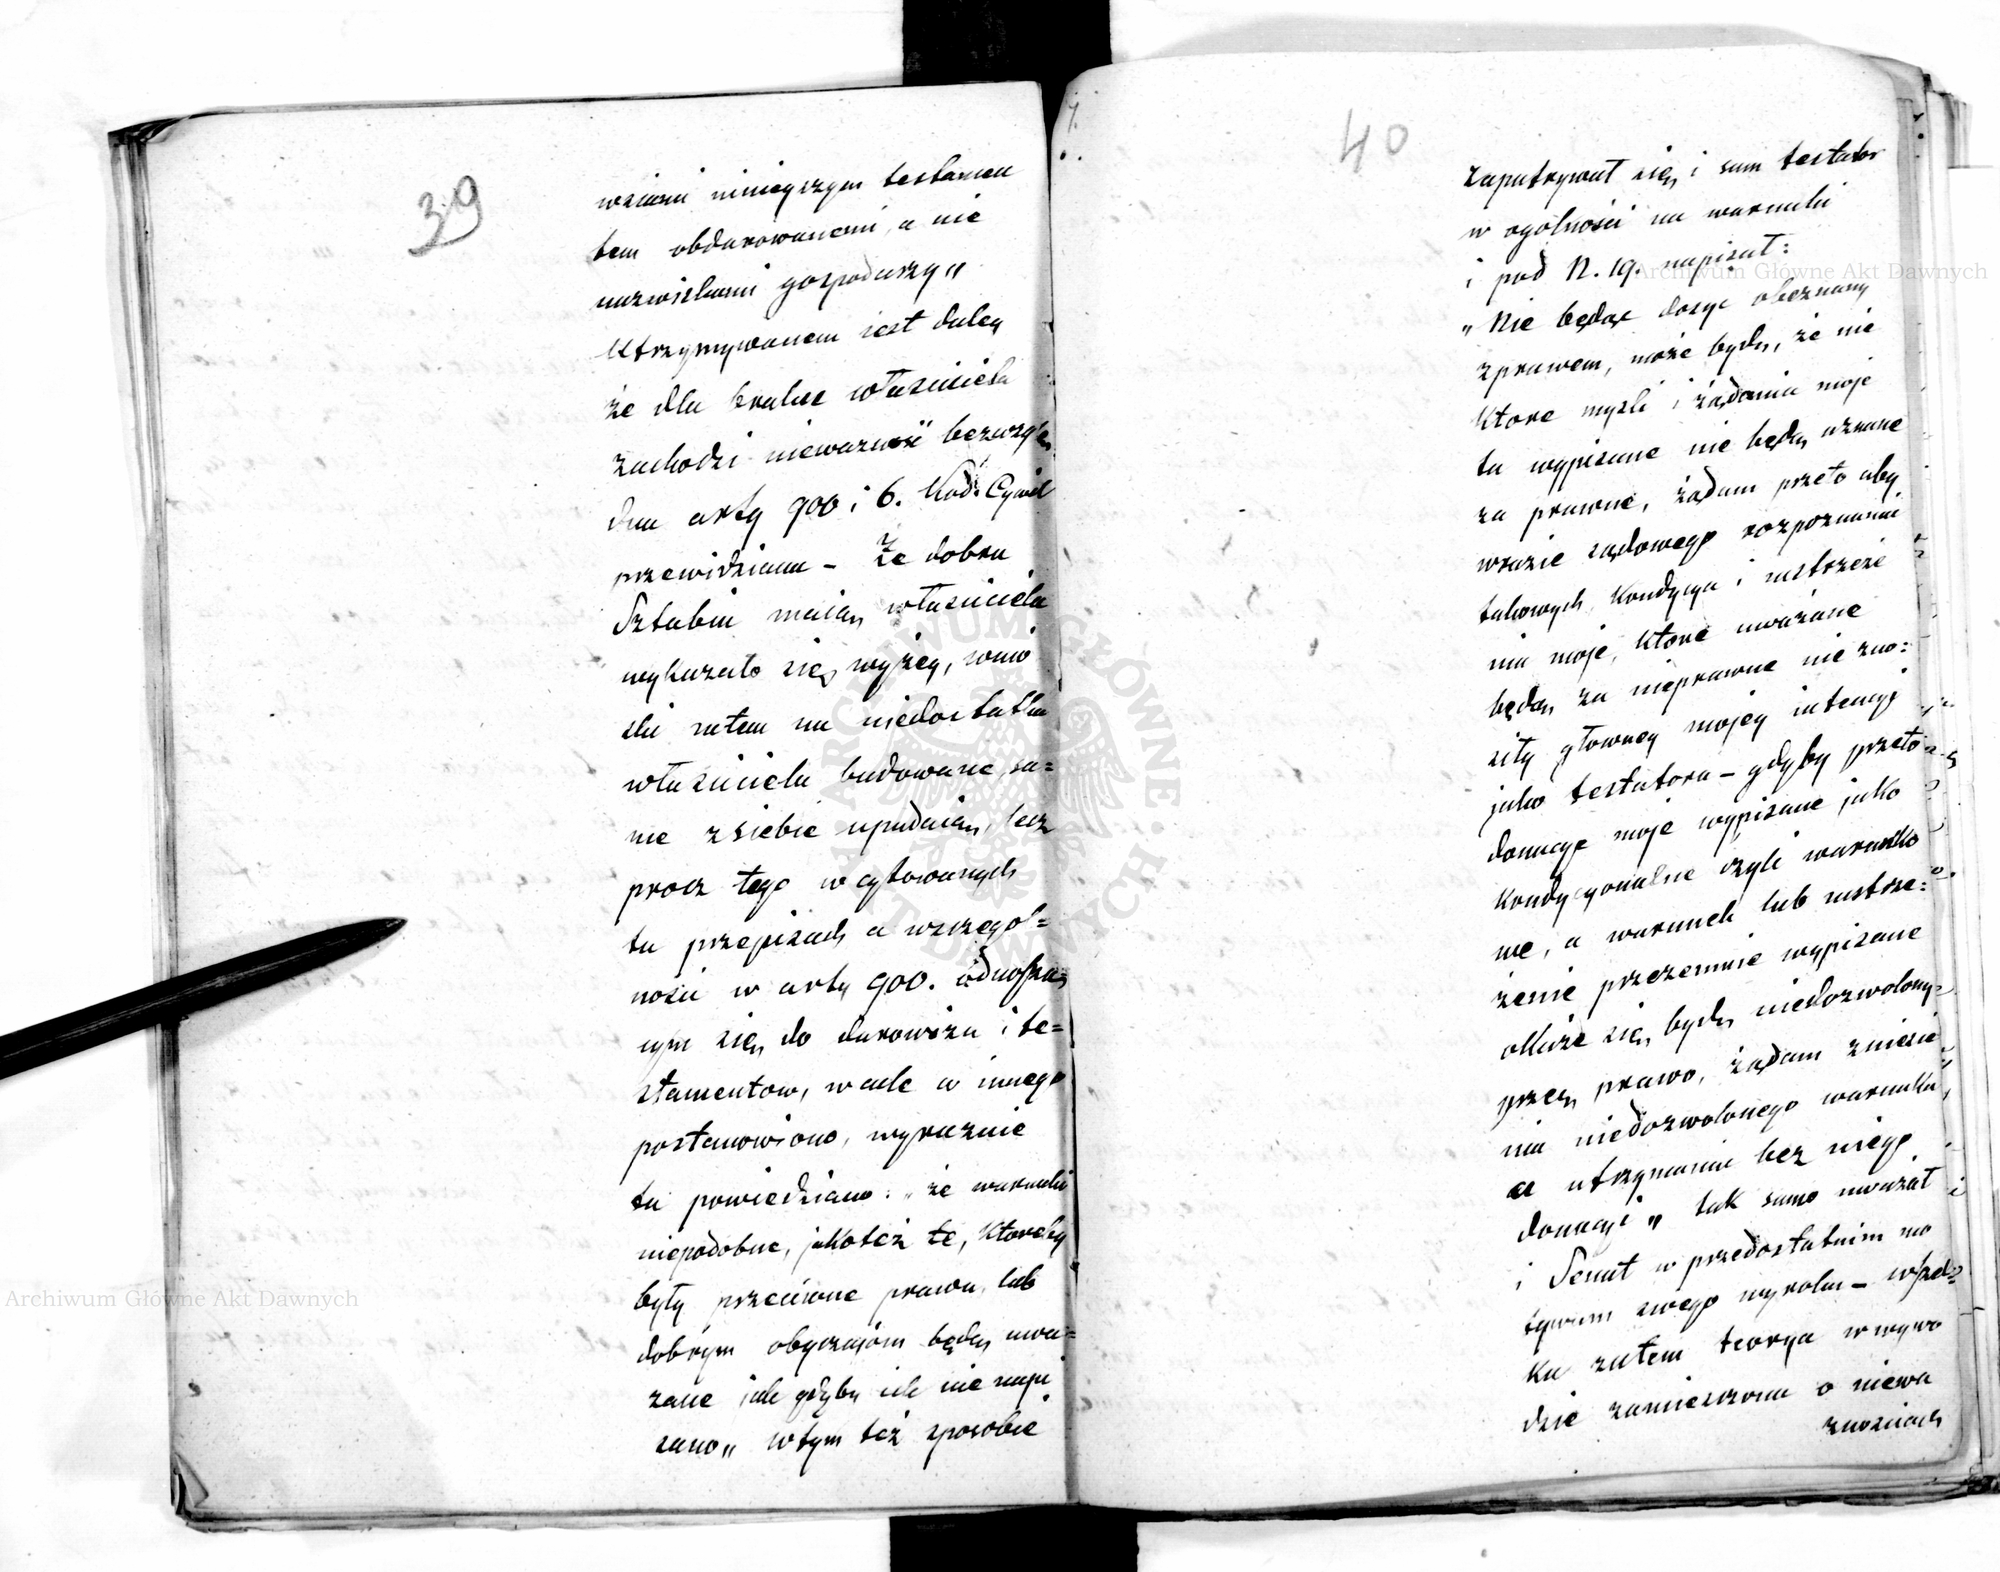 39
wsiami ninieyszym testamen
tem obdarowanemi, a nie
nazwiskami gospodarzy"
Utrzymywanem iest daley
że dla braku właściciela
zachodzi nieważność bezwzglę
dna arty 900 i 6. Kod: Cywil
przewidziana – Że dobra
Sztabin maią właściciela
wykazało się wyżey, wnio
ski zatem na niedostatku
właściciela budowane, sa=
me z siebie upadaią, lecz
procz tego w cytowanych
tu przepisach a wszczegol=
ności w arty 900. odnoszą
cym się do darowizn i te=
stamentow, wcale co innego
postanowiono, wyraznie
tu powiedziano: „że warunki
niepodobne, jakoteż te, ktoreby
były przeciwne prawu, lub
dobrym obyczajom będą uwa=
żane jak gdyby ich nie napi
sano„ wtym też sposobie
40
zapatrywał się i sam testator
w ogolności na warunki
i pod N. 19. napisał:
„Nie będąc dosyc obeznany
zprawem, może będą, że nie
ktore mysli i żądania moje
tu wypisane nie będą uznane
za prawne, żądam przeto aby
wrazie sądowego rozpoznania
takowych kondycya i zastrzeże
nia moje, ktore uważane
będą za nieprawne nie zno=
siły głowney mojey intencyi
jako testatora – gdyby przeto
donacye moje wypisane jako
kondycyonalne czyli warunko
we, a warunek lub zastrze=
żenie przezemnie wypisane
okaże się bydź niedozwolony=
przez prawo, żądam zniesie
nia niedozwolonego warunku
a utrzymania bez niego
donacyi" tak samo uważał
i Senat w przedostatnim mo
tywum swego wyroku –
ka zatem teorya w wywo
dzie zamieszczona o niewa
żnościach
Archiwum Główne Akt Dawnych
Archiwum Główne Akt Dawnych
ARCHIWUM GŁÓWNE AKT DAWNYCH